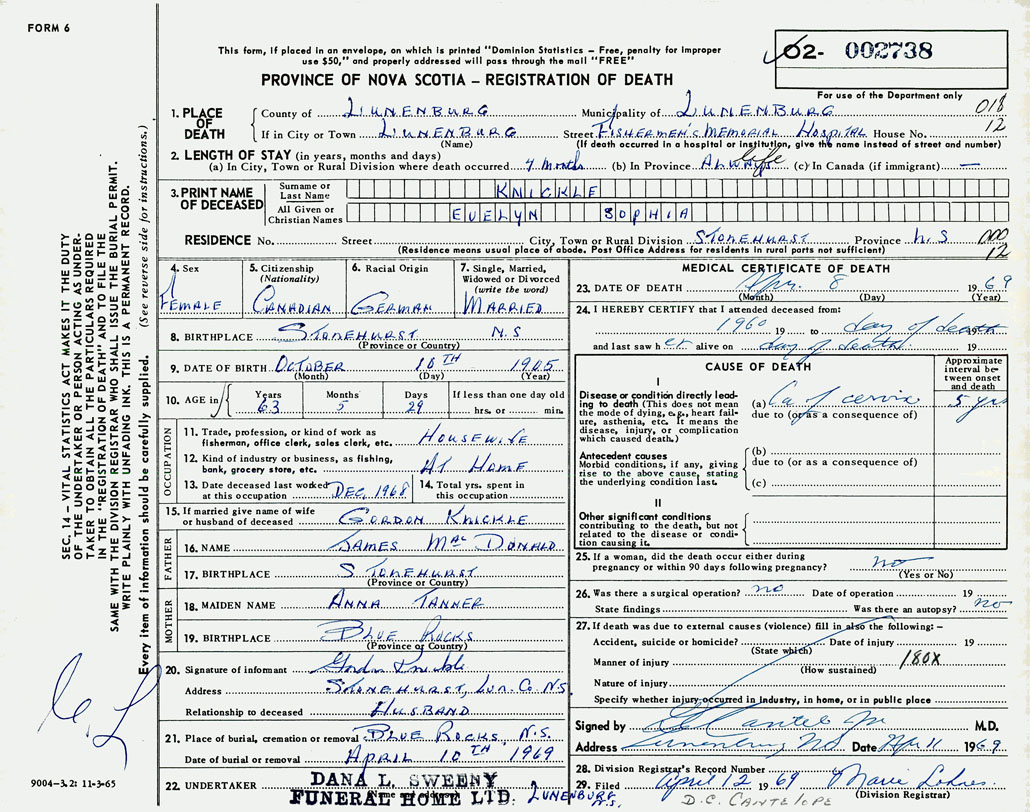 FORM 6
This form, if placed in an envelope, on which is printed "Dominion Statistics – Free, penalty for improper
use $50," and properly addressed will pass through the mail "FREE"
PROVINCE OF NOVA SCOTIA – REGISTRATION OF DEATH
O2- 002738
For use of the Department only
018
12
1. PLACE OF DEATH
County of LUNENBURG Municipality of LUNENBURG
If in City or Town LUNENBURG Street FISHERMEN'S MEMORIAL HOSPITAL House No.
(Name) (If death occurred in a hospital or institution, give the name instead of street and number)
2. LENGTH OF STAY (in years, months and days)
(a) In City, Town or Rural Division where death occurred 4 Months (b) In Province ALWAYS life (c) In Canada (if immigrant) —
3. PRINT NAME OF DECEASED
Surname or Last Name KNICKLE
All Given or Christian Names EVELYN SOPHIA
RESIDENCE No. Street City, Town or Rural Division STONEHURST Province N.S 000
(Residence means usual place of abode. Post Office Address for residents in rural parts not sufficient) 12
4. Sex
FEMALE
5. Citizenship (Nationality)
CANADIAN
6. Racial Origin
GERMAN
7. Single, Married, Widowed or Divorced (write the word)
MARRIED
8. BIRTHPLACE STONEHURST N.S
(Province or Country)
9. DATE OF BIRTH OCTOBER 10TH 1905
(Month) (Day) (Year)
10. AGE in Years Months Days If less than one day old
63 5 29 hrs. or min.
OCCUPATION
11. Trade, profession, or kind of work as fisherman, office clerk, sales clerk, etc. HOUSEWIFE
12. Kind of industry or business, as fishing, bank, grocery store, etc. AT HOME
13. Date deceased last worked at this occupation DEC, 1968
14. Total yrs. spent in this occupation
15. If married give name of wife or husband of deceased GORDON KNICKLE
FATHER
16. NAME JAMES MACDONALD
17. BIRTHPLACE STONEHURST
(Province or Country)
MOTHER
18. MAIDEN NAME ANNA TANNER
19. BIRTHPLACE BLUE ROCKS
(Province or Country)
20. Signature of informant Gordon Knickle
Address STONEHURST, LUN. CO N.S.
Relationship to deceased HUSBAND
21. Place of burial, cremation or removal BLUE ROCKS, N.S.
Date of burial or removal APRIL 10TH 1969
22. UNDERTAKER DANA L. SWEENY
FUNERAL HOME LTD. LUNENBURG N.S.
MEDICAL CERTIFICATE OF DEATH
23. DATE OF DEATH Apr. 8 1969
(Month) (Day) (Year)
24. I HEREBY CERTIFY that I attended deceased from:
1960 19 to day of death 19
and last saw her alive on day of death 19
CAUSE OF DEATH
Approximate interval between onset and death
I
Disease or condition directly leading to death (This does not mean the mode of dying, e.g., heart failure, asthenia, etc. It means the disease, injury, or complication which caused death.)
(a) Ca of cervix 5 yrs
due to (or as a consequence of)
Antecedent causes
Morbid conditions, if any, giving rise to the above cause, stating the underlying condition last.
(b)
due to (or as a consequence of)
(c)
II
Other significant conditions
contributing to the death, but not related to the disease or condition causing it.
25. If a woman, did the death occur either during pregnancy or within 90 days following pregnancy? no
(Yes or No)
26. Was there a surgical operation? no Date of operation 19
State findings Was there an autopsy? no
27. If death was due to external causes (violence) fill in also the following: –
Accident, suicide or homicide? Date of injury 19
(State which)
Manner of injury 180X
(How sustained)
Nature of injury
Specify whether injury occurred in industry, in home, or in public place
Signed by Jr M.D.
Address Lunenburg NS Date Apr 11 1969
28. Division Registrar's Record Number
29. Filed April 12 1969 Marie
(Division Registrar)
D.C. CANTELOPE
SEC. 14 – VITAL STATISTICS ACT MAKES IT THE DUTY
OF THE UNDERTAKER OR PERSON ACTING AS UNDER-
TAKER TO OBTAIN ALL THE PARTICULARS REQUIRED
IN THE "REGISTRATION OF DEATH" AND TO FILE THE
SAME WITH THE DIVISION REGISTRAR WHO SHALL ISSUE THE BURIAL PERMIT.
WRITE PLAINLY WITH UNFADING INK. THIS IS A PERMANENT RECORD.
Every item of information should be carefully supplied. (See reverse side for instructions.)
9004–3.2: 11-3-65